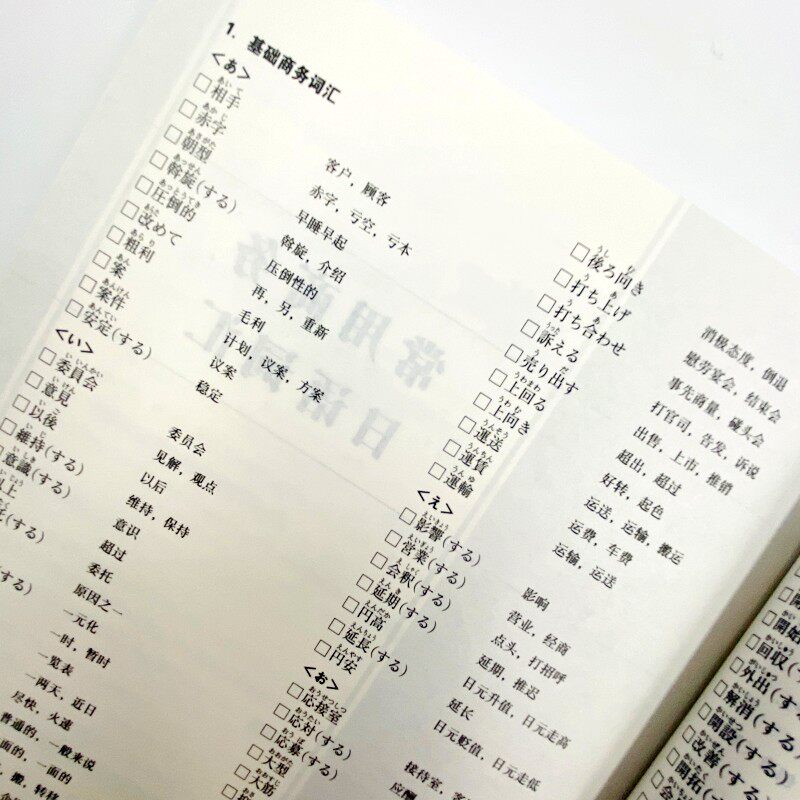 1. 基础商务词汇
<あ>
□相手 客户，顾客
□赤字 赤字，亏空，亏本
□朝型 早睡早起
□斡旋(する) 斡旋，介绍
□圧倒的 压倒性的
□改めて 再，另，重新
□粗利 毛利
□案 计划，议案，方案
□案件 议案
□安定(する) 稳定
<い>
□委員会 委员会
□意見 见解，观点
□以後 以后
□維持(する) 维持，保持
□意識(する) 意识
超过
委托
原因之一
一元化
一时，暂时
一览表
一两天，近日
尽快，火速
普通的，一般来说
□後ろ向き 消极态度，倒退
□打ち上げ 慰劳宴会，结束会
□打ち合わせ 事先商量，碰头会
□訴える 打官司，告发，诉说
□売り出す 出售，上市，推销
□上回る 超出，超过
□上向き 好转，起色
□運送 运送，运输，搬运
□運賃 运费，车费
□運輸 运输，运送
<え>
□影響(する) 影响
□営業(する) 营业，经商
□会釈(する) 点头，打招呼
□延期(する) 延期，推迟
□円高 日元升值，日元走高
□延長(する) 延长
□円安 日元贬值，日元走低
<お>
□応接室 接待室，客
□応対(する) 应酬
□応募(する)
□大型
□大筋
□開始
□回収(
□外出(
□解消(
□開設(
□改善(
□開拓(